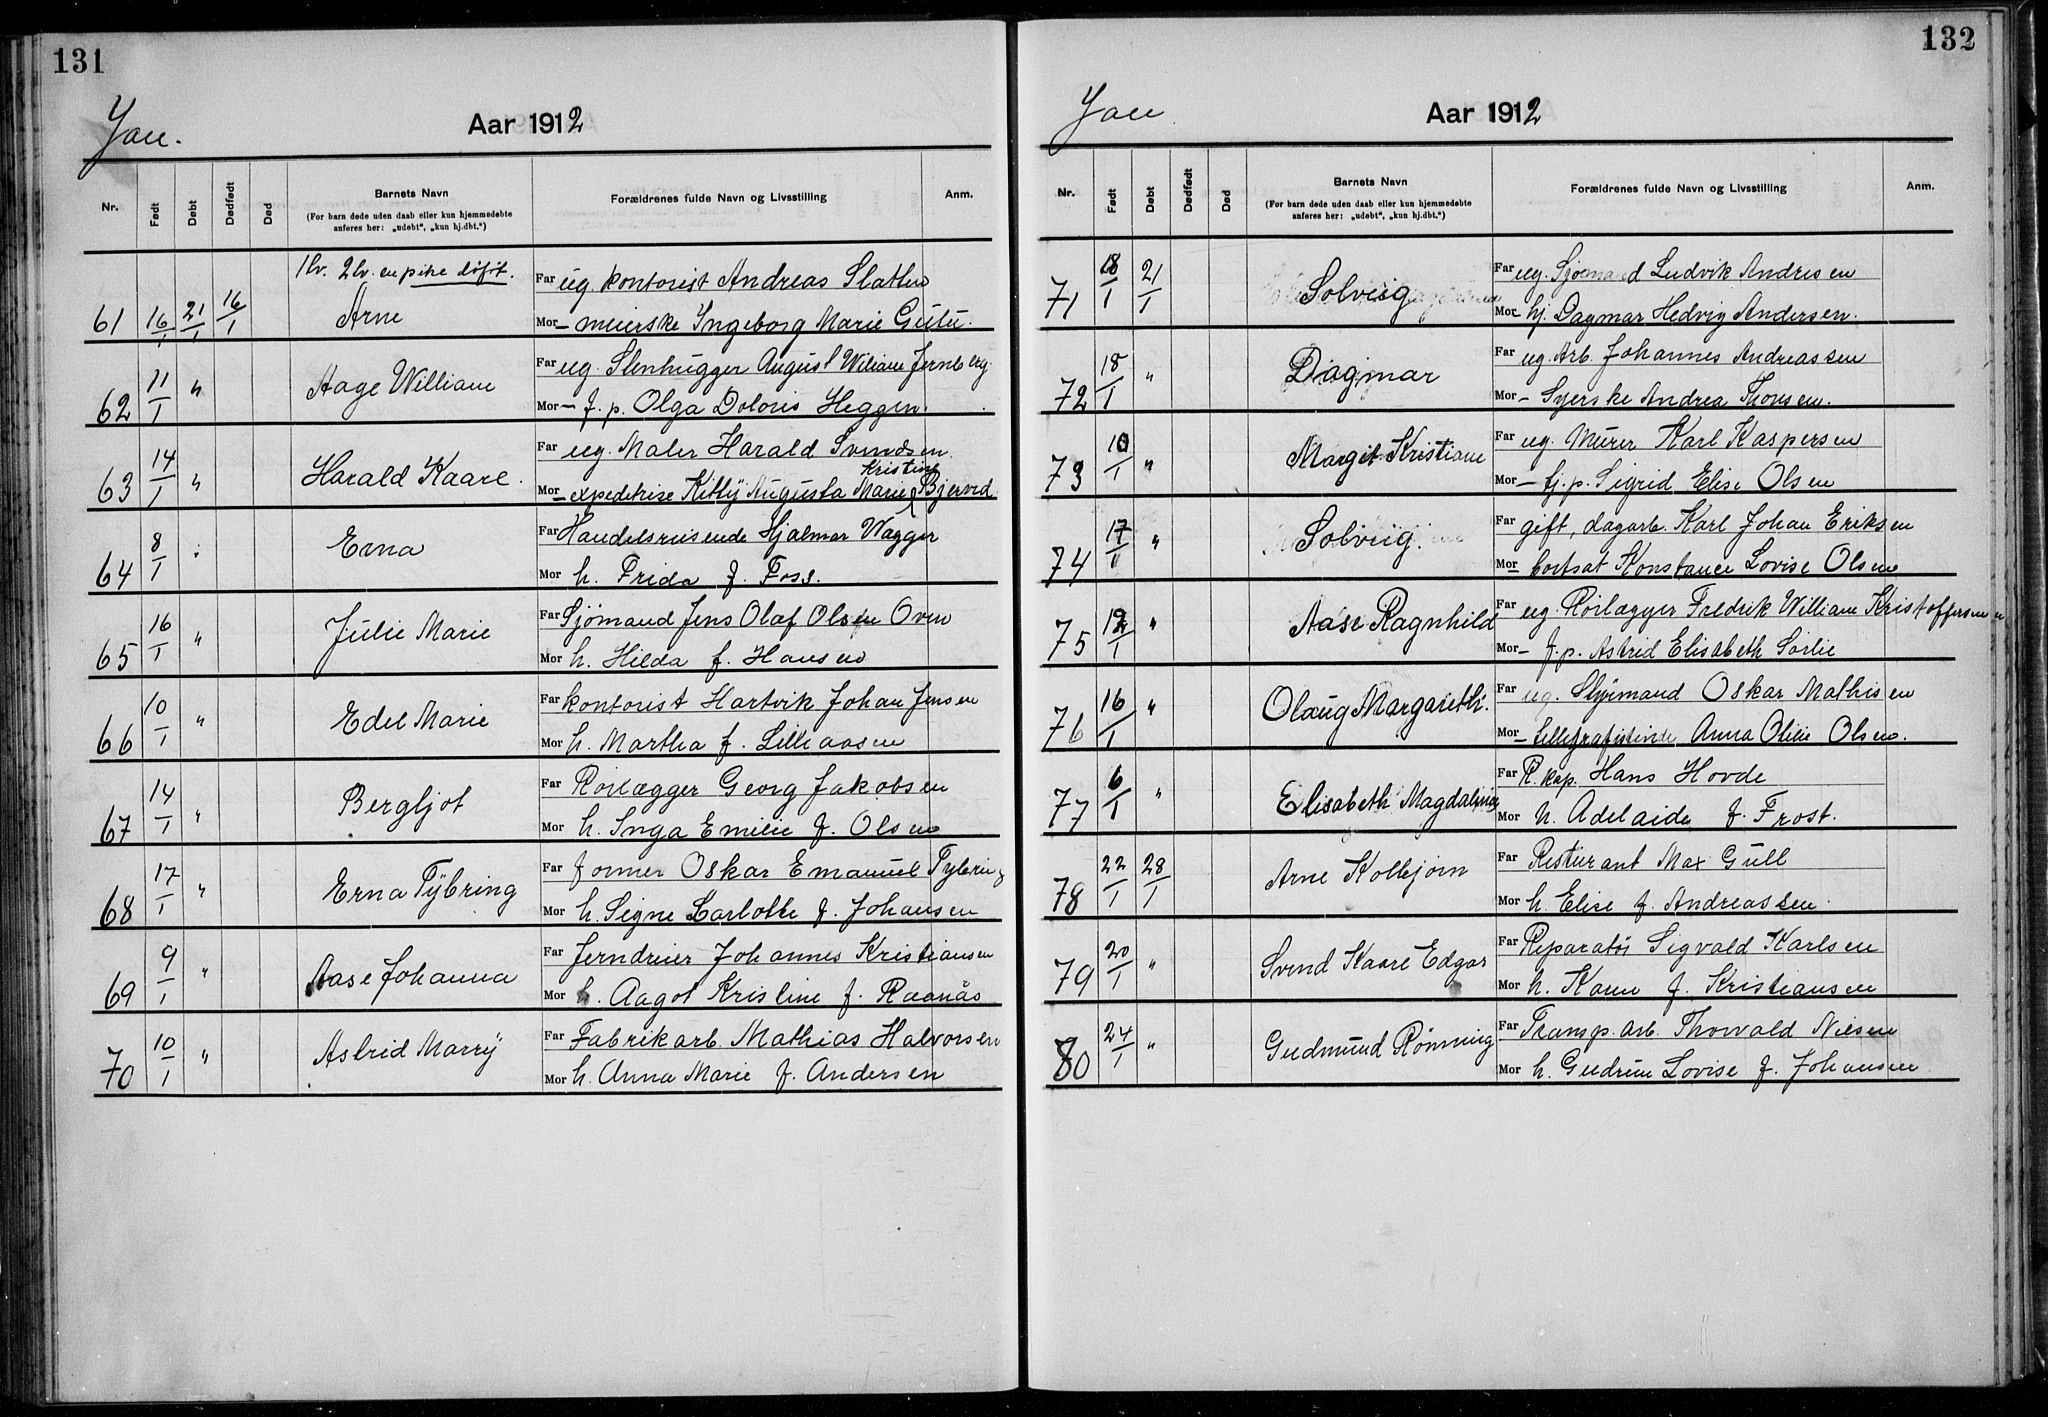 131
Jan.
Aar 1912
Nr. Født Døbt Dødfødt Død Barnets Navn Forældrenes fulde Navn og Livsstilling Anm.
(For barn døde uden daab eller kun hjemmedøbte
anføres her: „udøbt“, „kun hj.dbt.“)
1 lv. 2 lv. en pike døføt.
61 16/1 21/1 16/1 Arne Far ug. kontorist Andreas Slatten
Mor – meierske Ingeborg Marie Gulu.
62 11/1 " Aage William Far ug. Stenhugger August William Jernberg.
Mor – f. p. Olga Doloris Heggen.
63 14/1 " Harald Kaare. Far ug. Maler Harald Svendsen.
Kristine
Mor – expeditrise Kitty Augusta Marie Bjerved
64 8/1 " Erna Far Handelsreisende Hjalmar Wagger
Mor h. Frida f. Foss.
65 16/1 " Julie Marie Far Sjømand Jens Olaf Olsen Oven
Mor h. Hilda f. Hansen
66 10/1 " Edel Marie Far kontorist Hartvik Johan Jensen
Mor h. Martha f. Lilleaasen
67 14/1 " Bergljot Far Rørlægger Georg Jakobsen
Mor h. Inga Emilie f. Olsen
68 17/1 " Erna Tybring Far former Oskar Emanuel Tybring
Mor h. Signe Karlotte f. Johansen
69 9/1 " Aase Johanna Far Jerndreier Johannes Kristiansen
Mor h. Aagot Kristine f. Raanås
70 10/1 " Astrid Marry Far Fabrikarb. Mathias Halvorsen
Mor h. Anna Marie f. Andersen
132
Jan
Aar 1912
Nr. Født Døbt Dødfødt Død Barnets Navn Forældrenes fulde Navn og Livsstilling Anm.
(For barn døde uden daab eller kun hjemmedøbte
anføres her: „udøbt“, „kun hj.dbt.“)
71 18/1 21/1 Solveig Far ug. Sjømand Ludvik Andresen
Mor – hj. Dagmar Hedvig Andersen.
72 18/1 " Dagmar Far ug. Arb. Johannes Andreassen
Mor – Syerske Andrea Thonsen.
73 10/1 " Margit Kristiane Far ug. Murer Karl Kaspersen
Mor – tj. p. Sigrid Elise Olsen
74 17/11 " Solveig. Far gift, dagarb. Karl Johan Eriksen
Mor – bortsat Konstance Lovise Olsen
75 12/1 " Aase Ragnhild Far ug. Rørlægger Fredrik William Kristoffersen
Mor – f. p. Astrid Elisabeth Sørlie
76 16/1 " Olaug Margarethe. Far ug. Styrmand Oskar Mathisen
Mor – tellegrafistinde Anna Olise Olsen.
77 6/1 " Elisabeth Magdalene Far R. kap. Hans Hovde
Mor h. Adelaide f. Frost.
78 22/1 28/1 Arne Kolbjørn Far Resturant Max Gull
Mor h. Elise f. Andreassen.
79 20/1 " Svend Kaare Edgar Far Reparatør Sigvald Karlsen
Mor h. Karen f. Kristiansen
80 24/1 " Gudmund Rønning Far Transp. arb. Thorvald Nilsen
Mor h. Gudrun Lovise f. Johansen